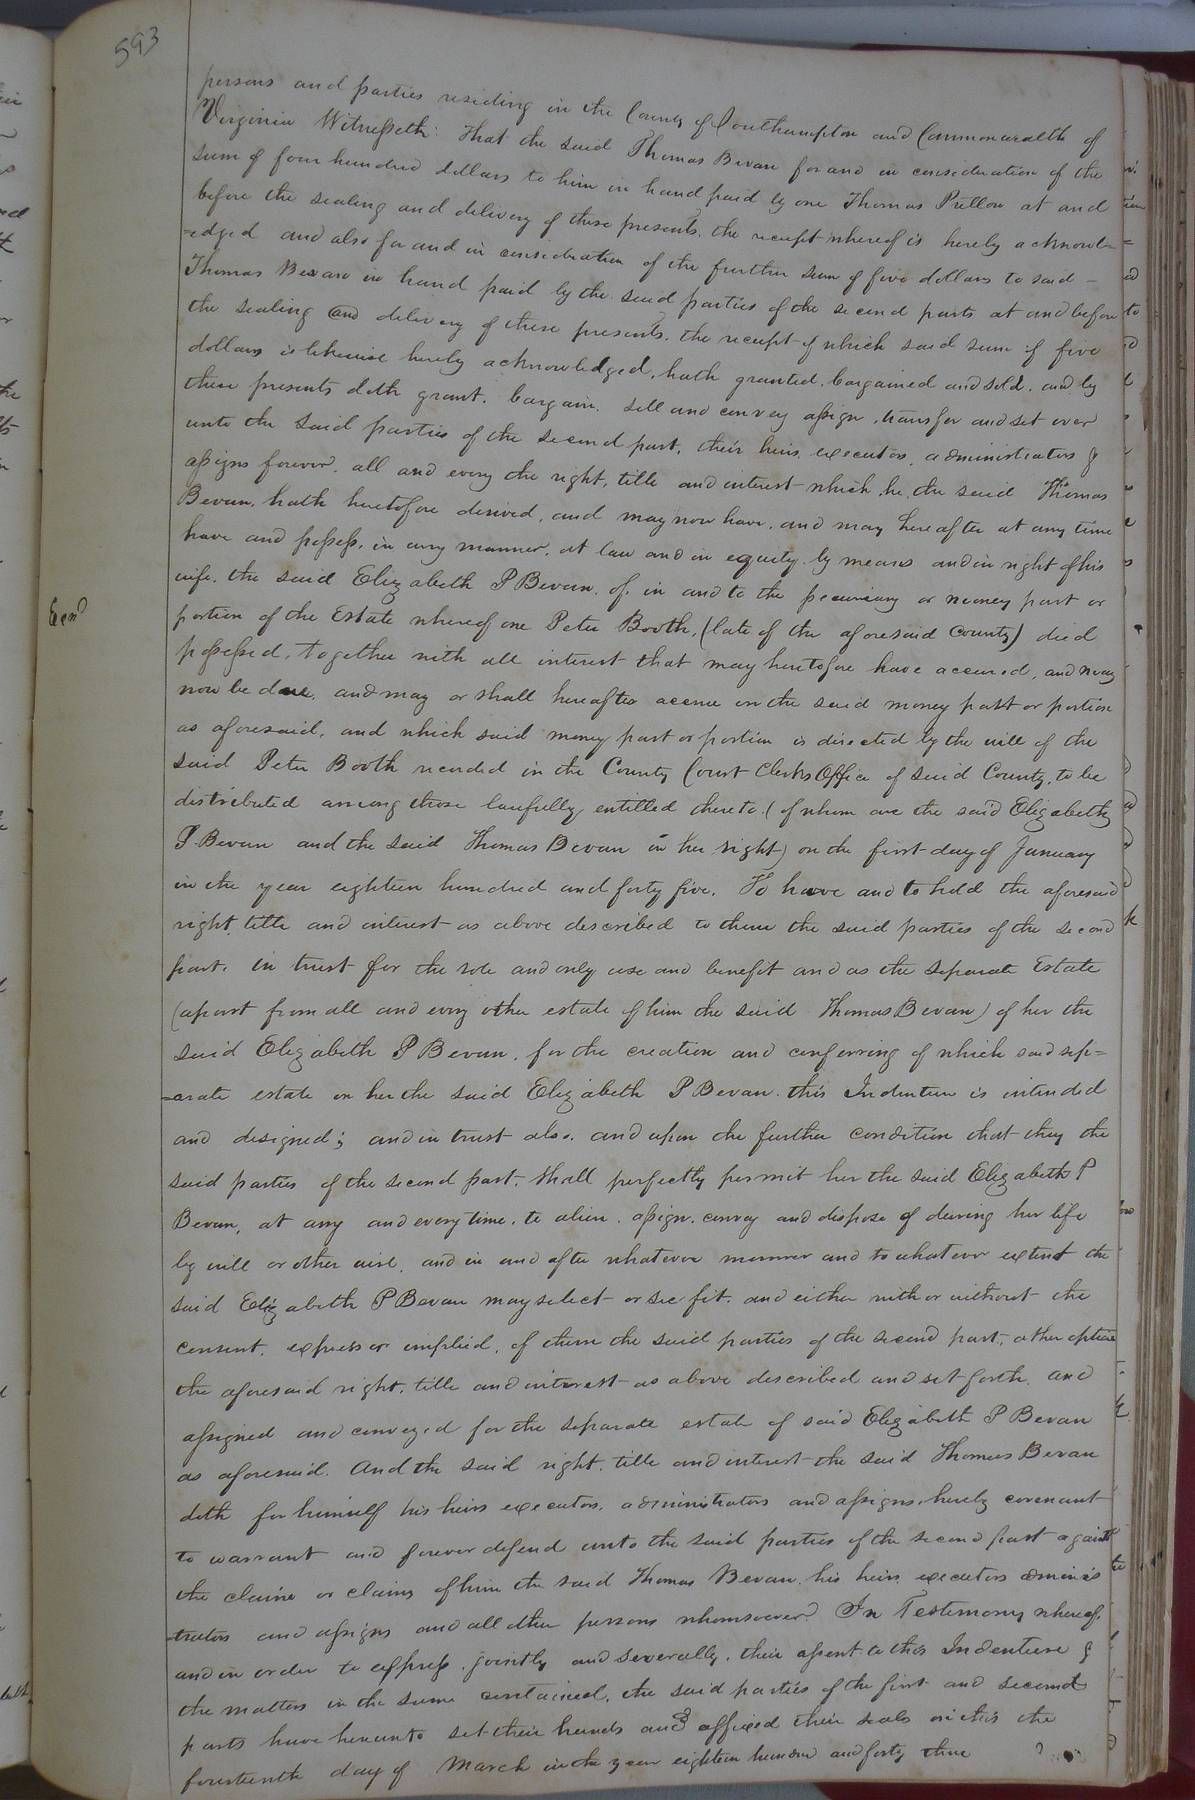 593
persons and parties residing in the County of Southampton and Commonwealth of
Virginia Witnesseth: That the said Thomas Bevan for and in consideration of the
sum of four hundred dollars to him in hand paid by one Thomas Pretlow at and
before the sealing and delivery of these presents, the receipt whereof is hereby acknowl=
=edged and also for and in consideration of the further sum of five dollars to said -
Thomas Bevan in hand paid by the said parties of the second parts at and before
the sealing and delivery of these presents, the receipt of which said sum of five
dollars is likewise hereby acknowledged, hath granted, bargained and sold, and by
these presents doth grant, bargain, sell and convey assign, transfer and set over
unto the said parties of the second part, their heirs, executors, administrators &
assigns forever, all and every the right, title and interest which, he, the said Thomas
Bevan, hath heretofore derived, and may now have, and may hereafter at any time
have and possess, in any manner, at law and in equity by means and in right of his
wife, the said Elizabeth P Bevan, of, in and to the pecuniary or money part or
Exnd
portion of the Estate whereof one Peter Booth, (late of the aforesaid County) died
possessed, together with all interest that may heretofore have accrued, and may
now be due, and may or shall hereafter accrue on the said money part or portion
as aforesaid, and which said money part or portion is directed by the will of the
said Peter Booth recorded in the County Court Clerks Office of said County, to be
distributed among those lawfully entitled thereto (of whom are the said Elizabeth
P Bevan and the said Thomas Bevan in her right) on the first day of January
in the year eighteen hundred and forty five. To have and to hold the aforesaid
right, title and interest as above described to them the said parties of the second
part, in trust for the sole and only use and benefit and as the separate Estate
(apart from all and every other estate of him the said Thomas Bevan) of her the
said Elizabeth P Bevan, for the creation and conferring of which said sep=
=arate estate on her the said Elizabeth P Bevan this Indenture is intended
and designed; and in trust also, and upon the further condition that they the
said parties of the second part, shall perfectly permit her the said Elizabeth P
Bevan, at any and every time, to alien, assign, convey and dispose of during her life
by will or other wise, and in and after whatever manner and to whatever extent the
said Elizabeth P Bevan may select or see fit, and either with or without the
consent, express or implied, of them the said parties of the second part,
the aforesaid right, title and interest as above described and set forth, and
assigned and conveyed for the separate estate of said Elizabeth P Bevan
as aforesaid. And the said right, title and interest the said Thomas Bevan
doth for himself his heirs executors, administrators and assigns, hereby covenant
to warrant and forever defend unto the said parties of the second part against
the claim or claims of him the said Thomas Bevan, his heirs executors adminis
=trators and assigns and all other persons whomsoever. In Testimony whereof,
and in order to express, jointly and severally, their assent to this Indenture &
the matters in the same contained, the said parties of the first and second
parts have hereunto set their hands and affixed their seals on this the
fourteenth day of March in the year eighteen hundred and forty three